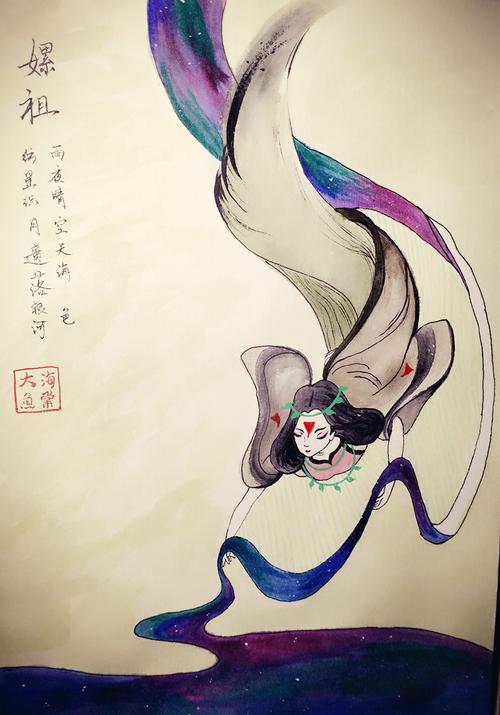 嫘祖
雨夜晴空天海色
纺星织月遗落银河
大魚
海棠